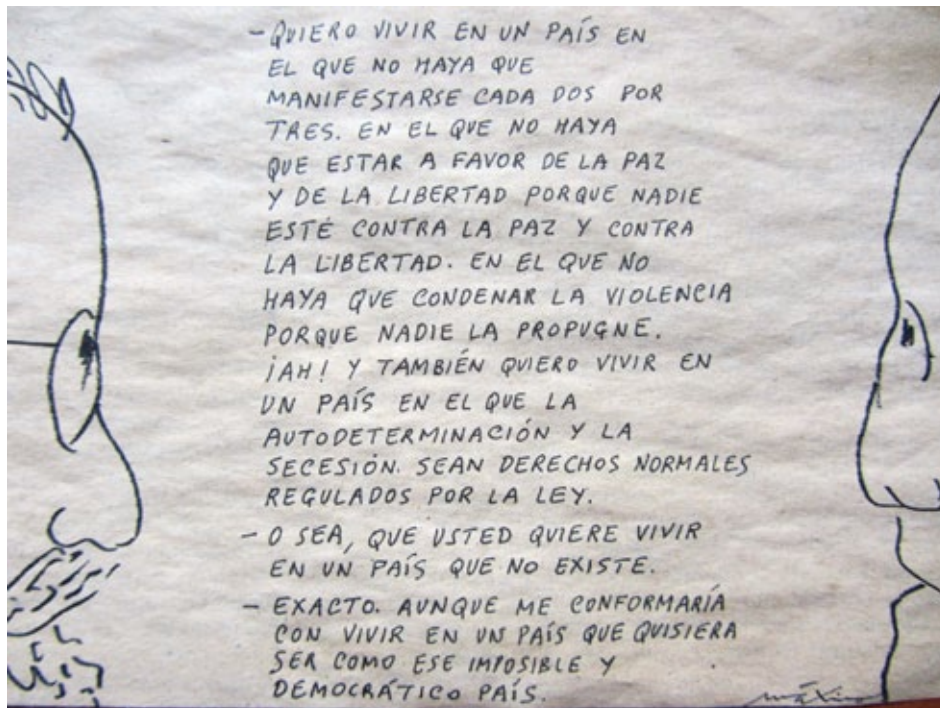 - QUIERO VIVIR EN UN PAÍS EN
EL QUE NO HAYA QUE
MANIFESTARSE CADA DOS POR
TRES. EN EL QUE NO HAYA
QUE ESTAR A FAVOR DE LA PAZ
Y DE LA LIBERTAD PORQUE NADIE
ESTÉ CONTRA LA PAZ Y CONTRA
LA LIBERTAD. EN EL QUE NO
HAYA QUE CONDENAR LA VIOLENCIA
PORQUE NADIE LA PROPUGNE.
¡AH! Y TAMBIÉN QUIERO VIVIR EN
UN PAÍS EN EL QUE LA
AUTODETERMINACIÓN Y LA
SECESIÓN. SEAN DERECHOS NORMALES
REGULADOS POR LA LEY.
- O SEA, QUE USTED QUIERE VIVIR
EN UN PAÍS QUE NO EXISTE.
- EXACTO. AUNQUE ME CONFORMARÍA
CON VIVIR EN UN PAÍS QUE QUISIERA
SER COMO ESE IMPOSIBLE Y
DEMOCRÁTICO PAÍS.
máximo